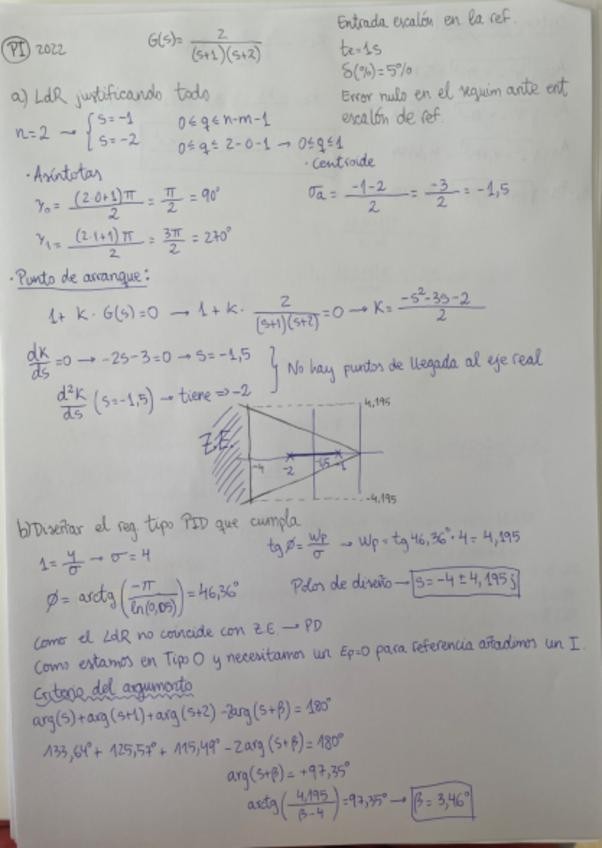 PI 2022
G(s)= 2/((s+1)(s+2))
Entrada escalón en la ref.
te=1s
δ(%)=5%
Error nulo en el seguim ante ent
escalón de ref.
a) LdR justificando todo
n=2 → { s=-1
s=-2
0≤q≤n-m-1
0≤q≤2-0-1 → 0≤q≤1
· Asíntotas
γ₀= (2·0+1)π/2 = π/2 = 90°
γ₁= (2·1+1)π/2 = 3π/2 = 270°
· centroide
σa = (-1-2)/2 = -3/2 = -1,5
· Punto de arranque:
1+ K·G(s)=0 → 1+K· 2/((s+1)(s+2)) =0 → K= (-s²-3s-2)/2
dK/ds =0 → -2s-3=0 → s=-1,5
d²K/ds (s=-1,5) → tiene => -2
} No hay puntos de llegada al eje real
4,195
Z.E.
-4
-2
-1,5
-1
-4,195
b) Diseñar el reg. tipo PID que cumpla
1= 4/σ → σ=4
tg Ø= Wp/σ → Wp= tg 46,36°·4= 4,195
Ø= arctg(-π/ln(0,05)) = 46,36°
Polos de diseño → s=-4 ± 4,195j
Como el LdR no coincide con Z.E. → PD
Como estamos en Tipo 0 y necesitamos un Ep=0 para referencia añadimos un I.
Criterio del argumento
arg(s)+arg(s+1)+arg(s+2) -2arg(s+β)= 180°
133,64°+ 125,57° + 115,49° - 2arg(s+β)=180°
arg(s+β)= +97,35°
arctg(4,195/(β-4))=97,35° → β= 3,46°